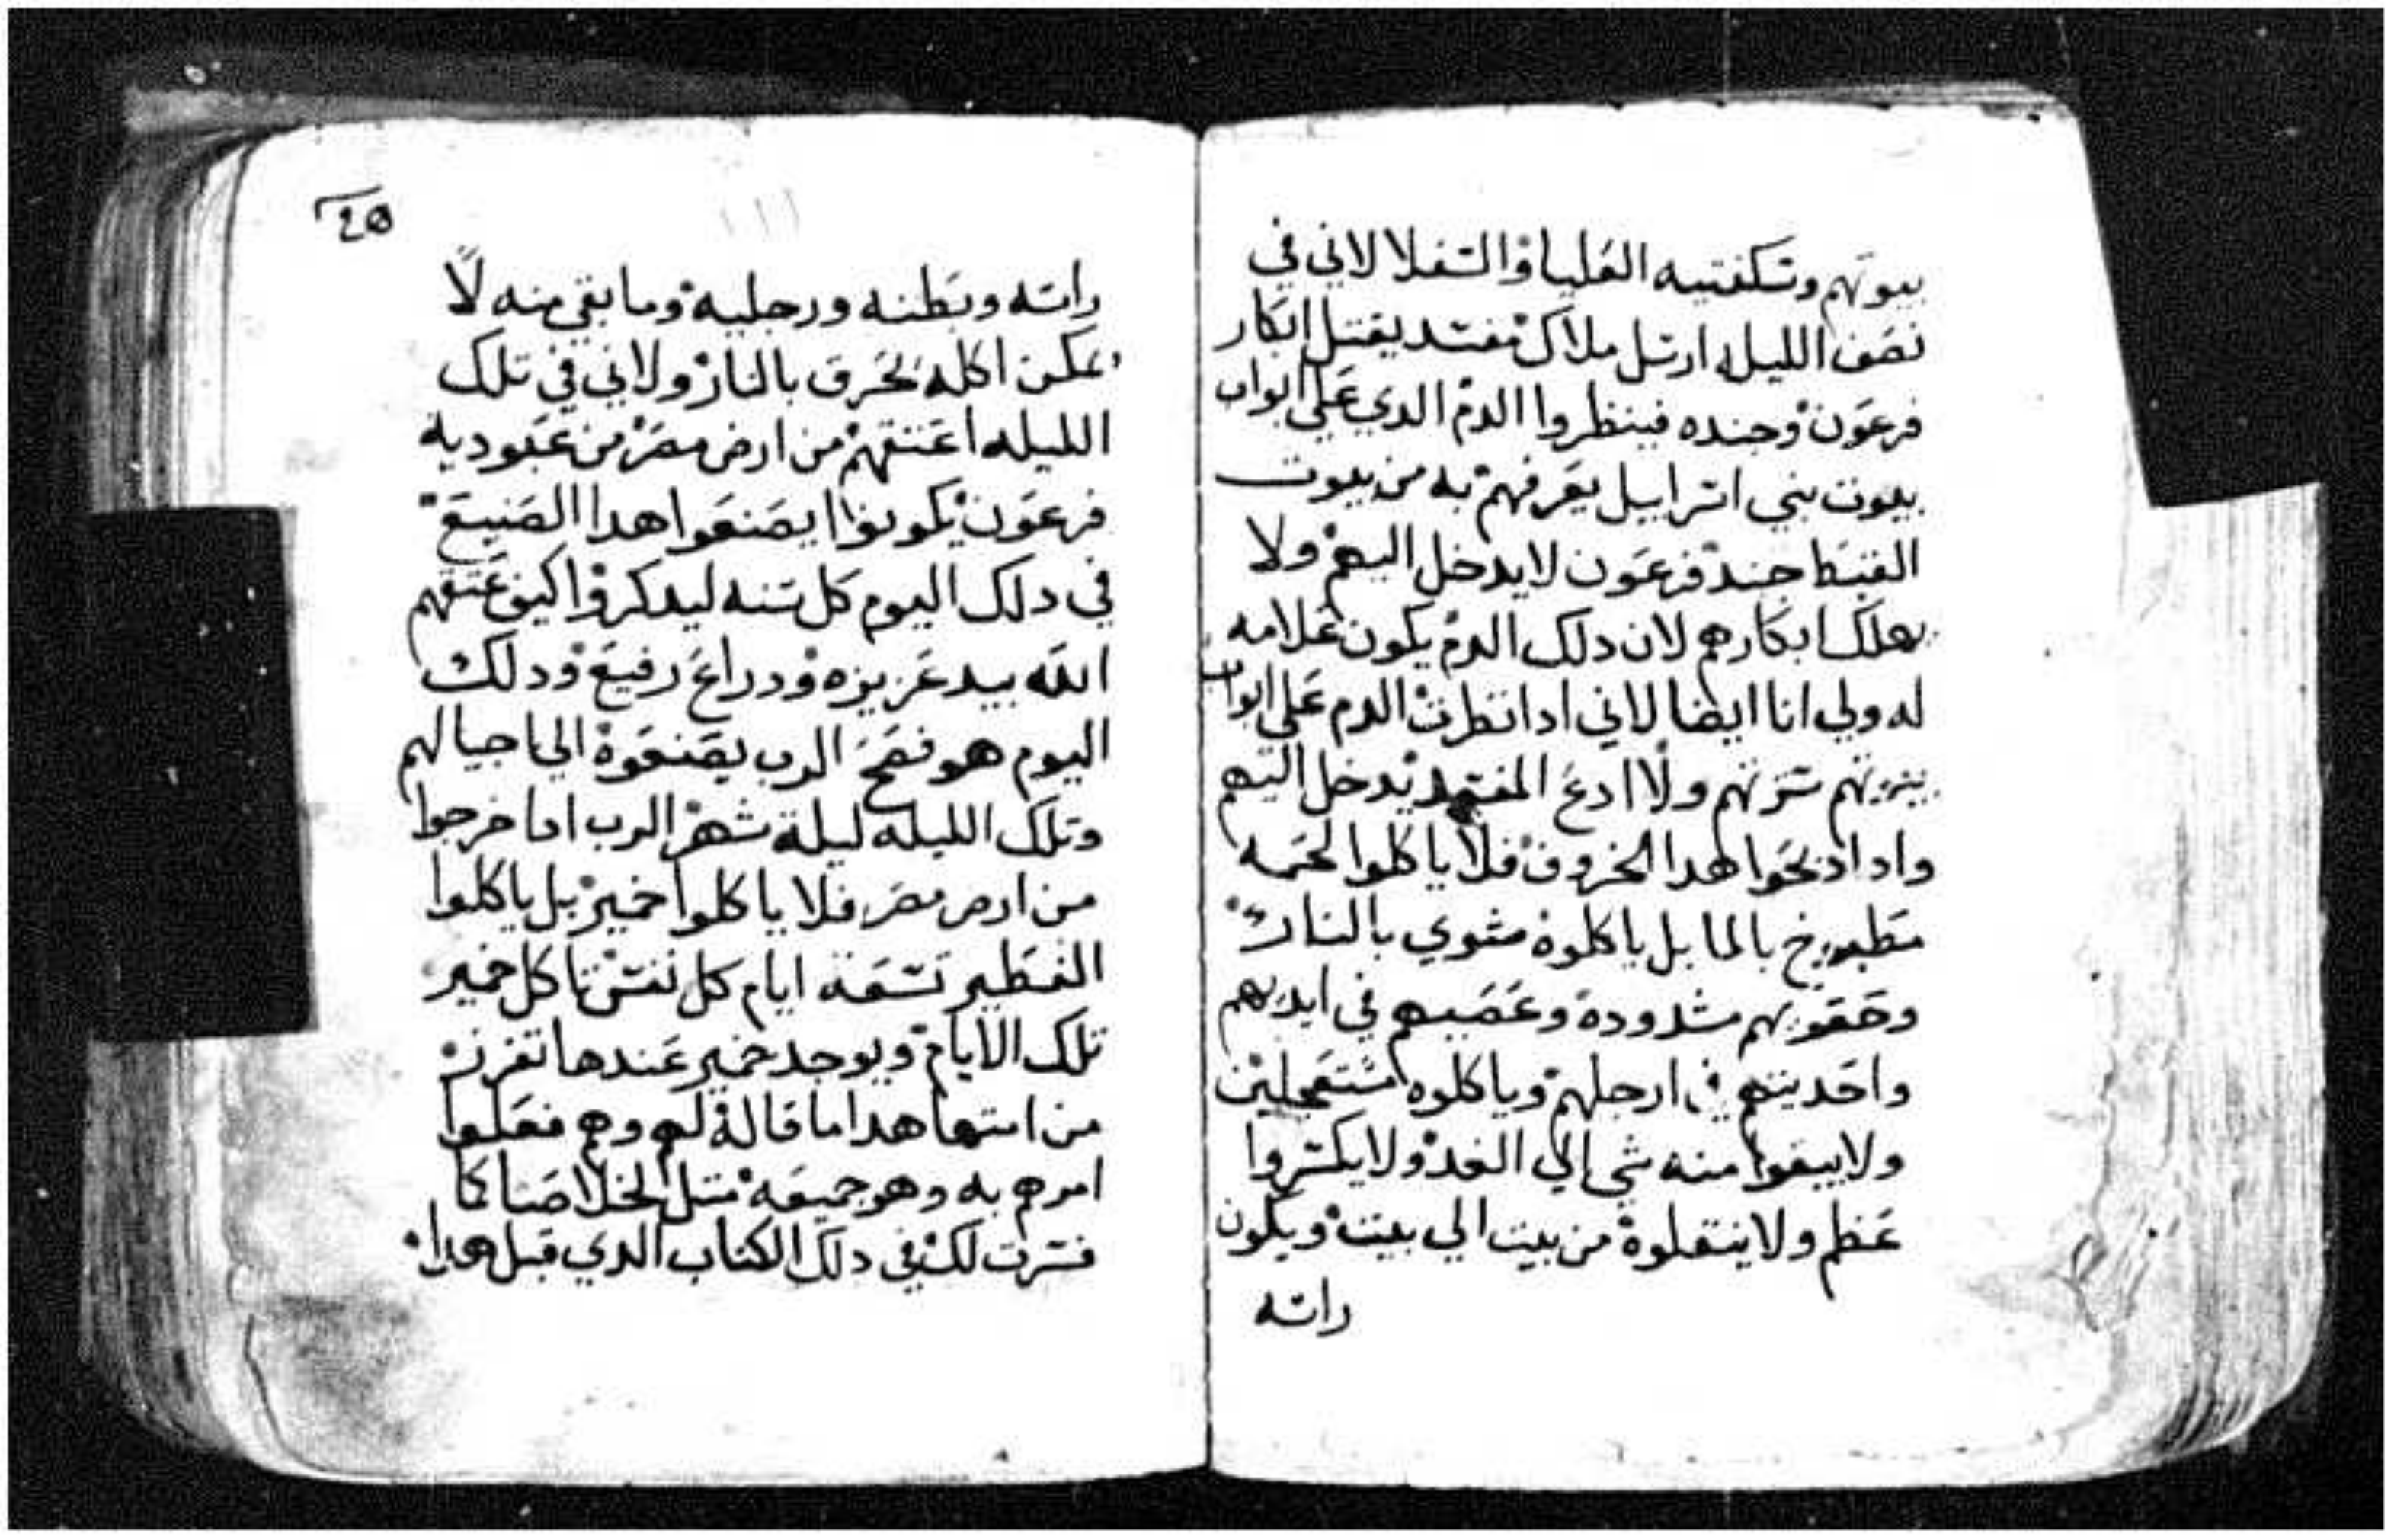 بيوتهم وتسكفتيه العليا والسفلا لاني في
نصف الليله ارسل ملاك مفسد يقتل ابكار
فرعون وجنده فينظروا الدم الدي علي ابواب
بيوت بني اسراييل يعرفهم به من بيوت
القبط جند فرعون لا يدخل اليهم ولا
يهلك ابكارهم لان دلك الدم يكون علامه
له ولي انا ايضا لاني ادا نظرت الدم علي ابواب
بيوتهم سترتهم ولا ادع المفسد يدخل اليهم
وادا دبحوا هدا الخروف فلا ياكلوا لحمه
مطبوخ بالما بل ياكلوه مشوي بالنار
وحقويهم مشدودة وعصيهم في ايديهم
واحديتهم في ارجلهم وياكلوه مستعجلين
ولا يبقوا منه شي الي الغد ولا يكسروا
عظم ولا ينقلوه من بيت الي بيت ويكون
راسه
20
راسه وبطنه ورجليه وما بقي منه لا
يمكن اكله يحرق بالنار ولاني في تلك
الليله اعتقهم من ارض مصر من عبوديه
فرعون يكونوا يصنعوا هدا الصنيع
في دلك اليوم كل سنه ليدكروا كيف عتقهم
الله بيد عزيزه ودراع رفيع ودلك
اليوم هو فصح الرب يصنعوة الي اجيالهم
وتلك الليله ليلة شهر الرب ادا خرجوا
من ارض مصر فلا ياكلوا خمير بل ياكلوا
الفطير تسعة ايام كل نفس تاكل خمير
تلك الايام ويوجد خمير عندها تفرز
من امتها هدا ما قالة لهم وهم فعلوا
امرهم به وهو جميعه متل لخلاصنا كما
فسرت لك في دلك الكتاب الدي قبل هدا